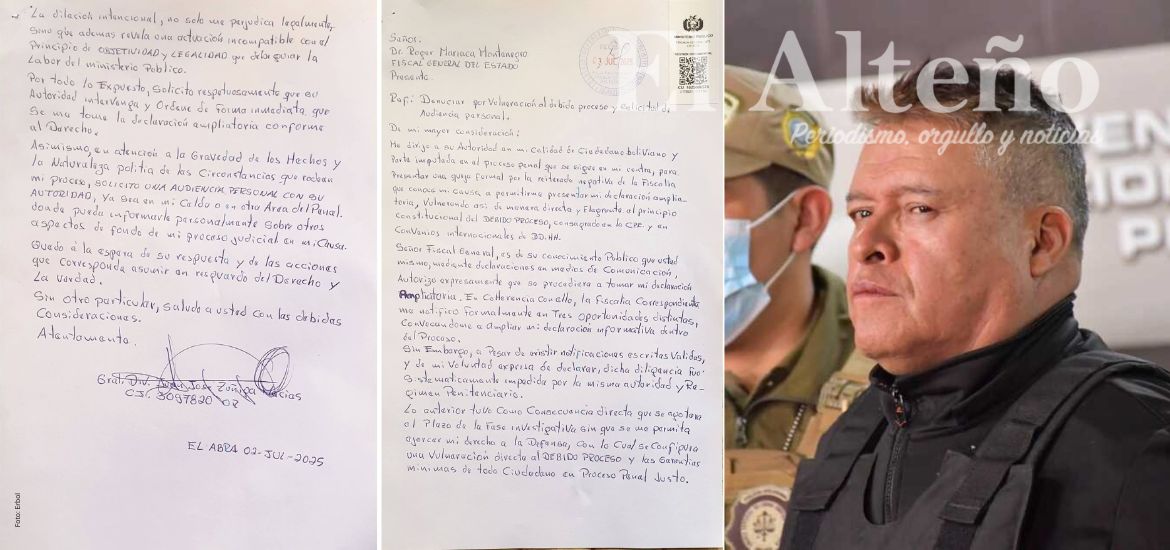 "La dilación intencional, no solo me perjudica legalmente,
sino que ademas revela una actuación incompatible con el
Principio de OBJETIVIDAD y LEGALIDAD que debe guiar la
Labor del ministerio Publico.
Por todo lo Expuesto, Solicito respetuosamente que su
Autoridad intervenga y Ordene de Forma inmediata que
Se me tome la declaración ampliatoria conforme
al Derecho.
Asimismo, en atención a la Gravedad de los Hechos y
la Naturaleza politica de las Circunstancias que rodean
mi proceso, SOLICITO UNA AUDIENCIA PERSONAL CON SU
AUTORIDAD, ya sea en mi Celda o en otra Area del Penal.
donde pueda informarle personalmente sobre otros
aspectos de fondo de mi proceso judicial en mi Causa.
Quedo a la espera de su respuesta y de las acciones
que corresponda asumir en resguardo del Derecho y
La Verdad.
Sin otro particular, saludo a usted con las debidas
Consideraciones.
Atentamente.
Gral. Div. Juan José Zuñiga Macias
C.I. 3097820 OR
EL ABRA 02-JUL-2025
Foto: Erbol
Señor:
Dr. Roger Mariaca Montenegro
FISCAL GENERAL DEL ESTADO
Presente.
MINISTERIO PÚBLICO
03 JUL 2025
Ref: Denuncia por Vulneración al debido proceso y solicitud de
Audiencia personal.
De mi mayor consideración:
Me dirijo a su Autoridad en mi Calidad de Ciudadano boliviano y
Parte imputada en el proceso penal que se sigue en mi contra, para
Presentar una queja formal por la reiterada negativa de la Fiscalía
que conoce mi causa a permitirme presentar mi declaración amplia-
toria, Vulnerando asi de manera directa y Flagrante al principio
Constitucional del DEBIDO PROCESO, consagrado en la CPE. y en
Convenios internacionales de DD.HH.
Señor Fiscal General, es de su conocimiento Publico que usted
mismo, mediante declaraciones en medios de Comunicación,
Autorizo expresamente que se procediera a tomar mi declaración
Ampliatoria. En Coherencia con ello, la Fiscalia Correspondiente
me notificó Formalmente en Tres oportunidades distintas,
Convocandome a ampliar mi declaración informativa dentro
del Proceso.
Sin Embargo, a Pesar de existir notificaciones escritas Validas,
y de mi Voluntad expresa de declarar, dicha diligencia Fue
Sistematicamente impedida por la misma autoridad y Re-
gimen Penitenciario.
Lo anterior tuvo Como Consecuencia directa que se agotara
el Plazo de la Fase investigativa sin que se me permita
ejercer mi derecho a la Defensa, con lo Cual se Configura
una Vulneración directa al DEBIDO PROCESO y las Garantias
minimas de todo Ciudadano en Proceso Penal Justo.
El Alteño
Periodismo, orgullo y noticias